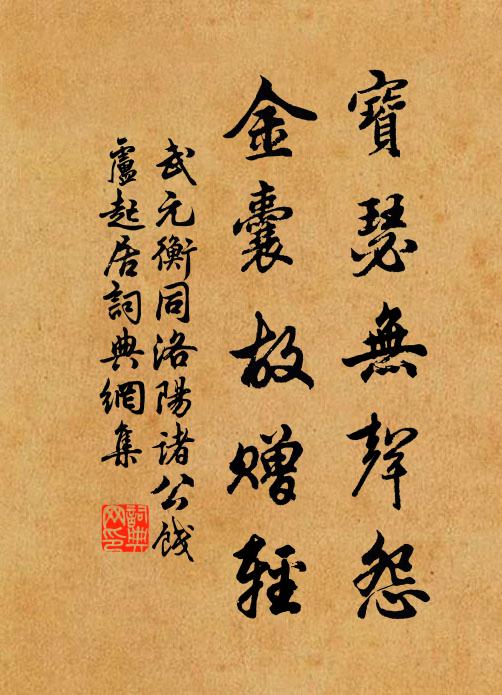 寶瑟無聲怨
金囊故贈輕
武元衡同洛陽諸公餞
盧起居詞典網集
詞典
网印